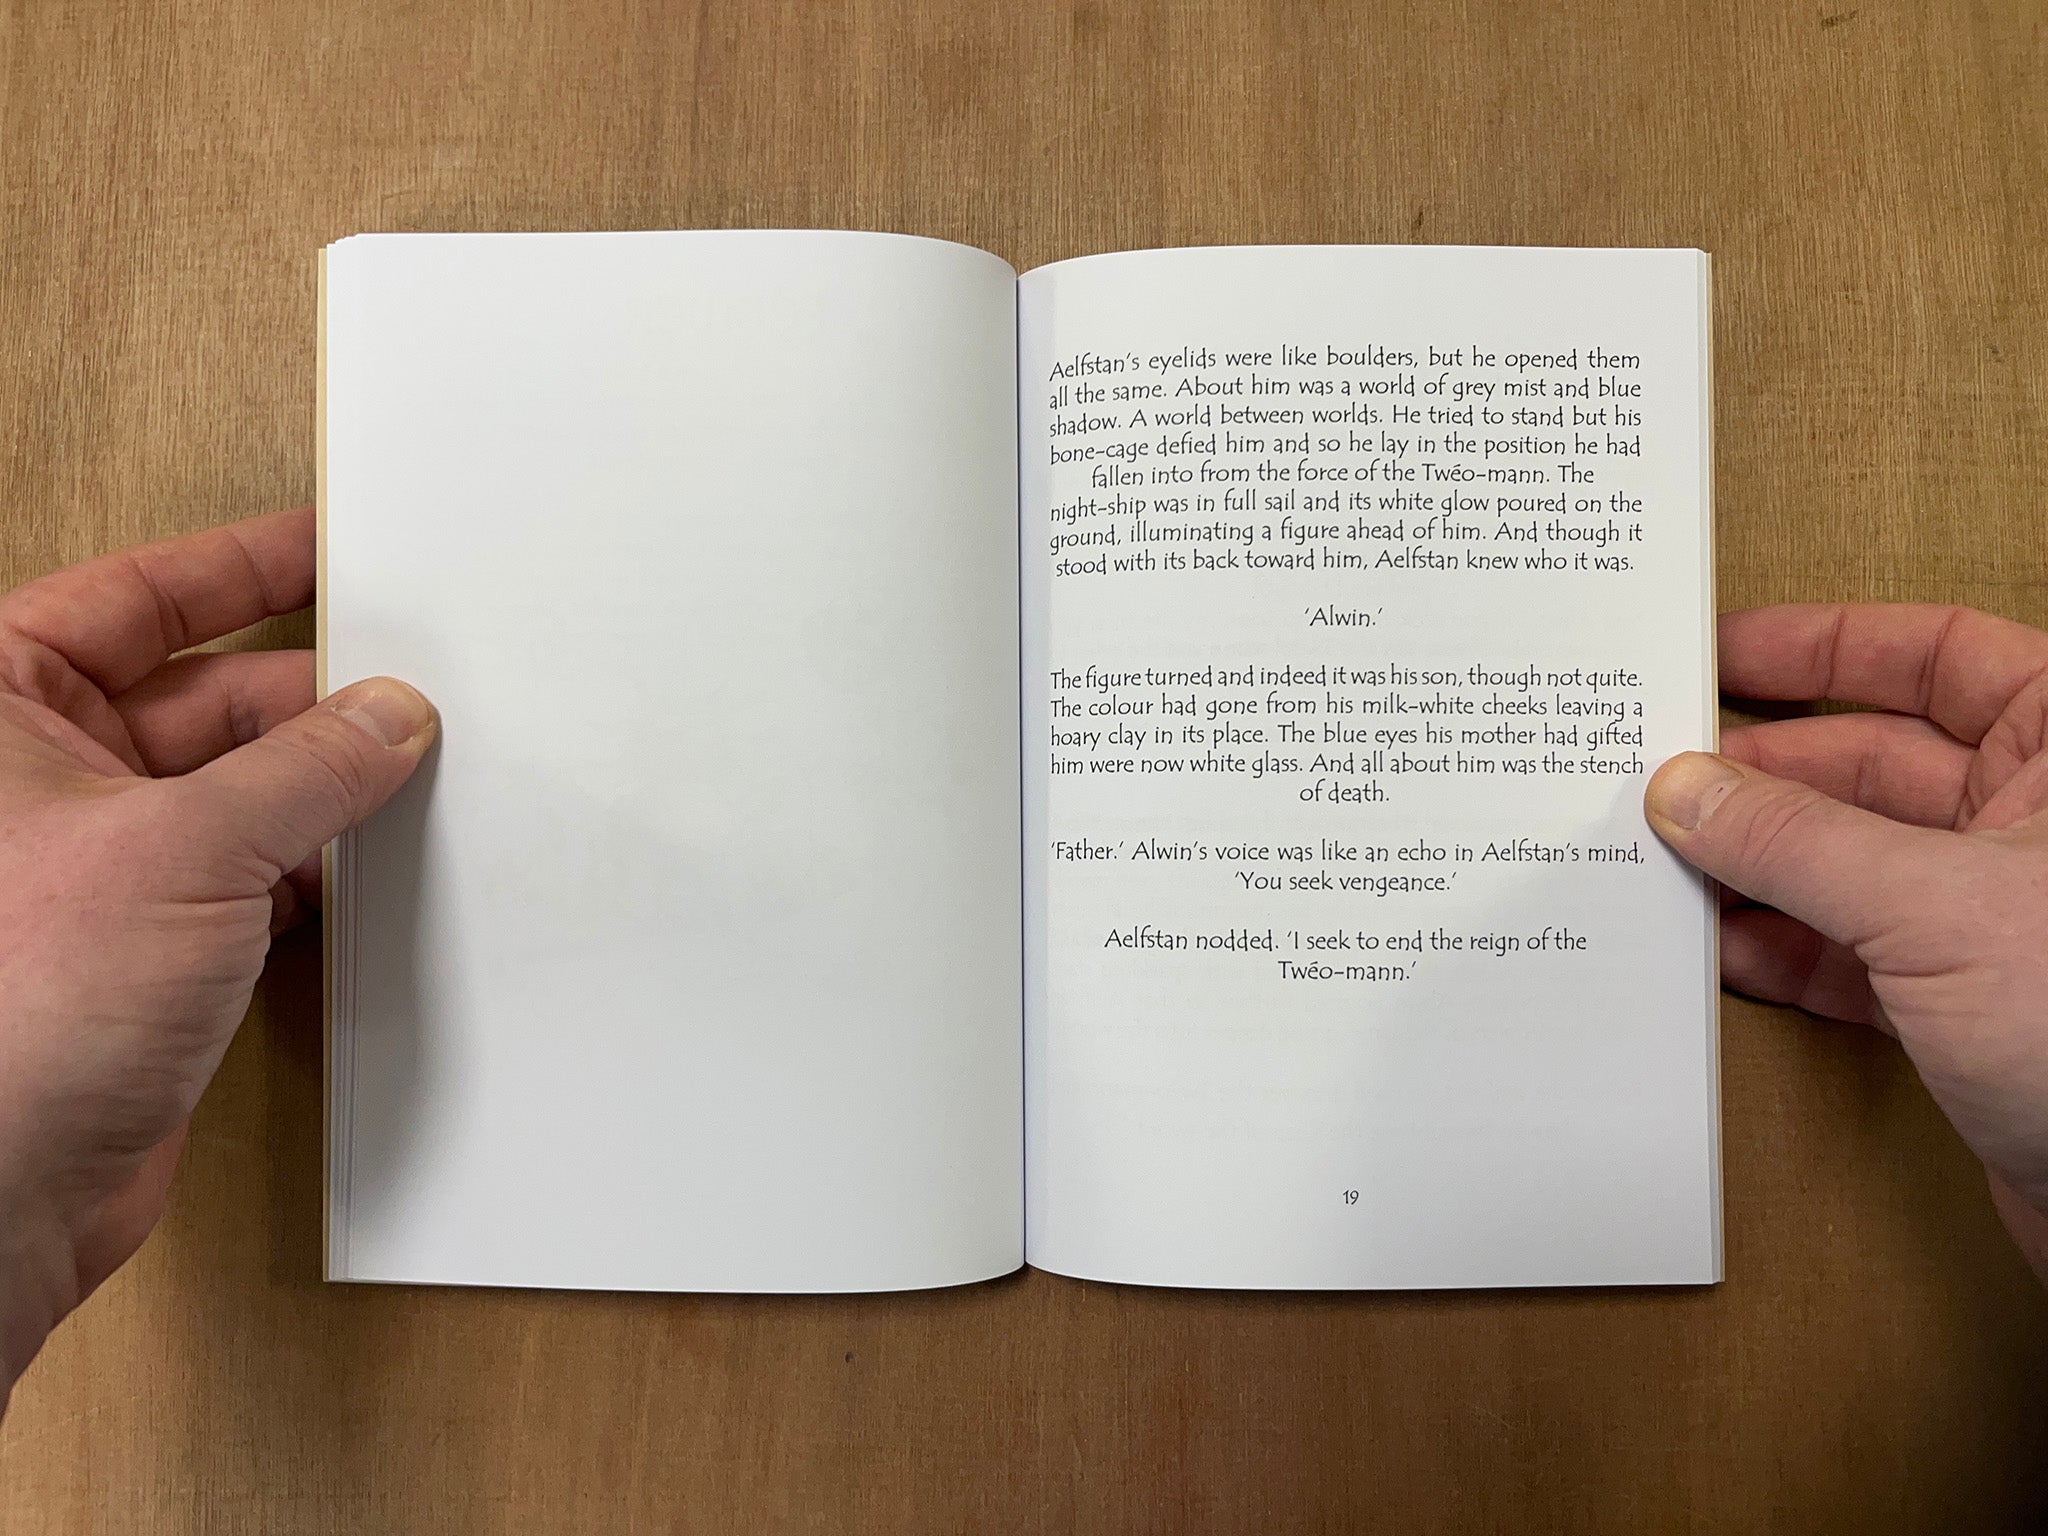 Aelfstan's eyelids were like boulders, but he opened them
all the same. About him was a world of grey mist and blue
shadow. A world between worlds. He tried to stand but his
bone-cage defied him and so he lay in the position he had
fallen into from the force of the Twéo-mann. The
night-ship was in full sail and its white glow poured on the
ground, illuminating a figure ahead of him. And though it
stood with its back toward him, Aelfstan knew who it was.
'Alwin.'
The figure turned and indeed it was his son, though not quite.
The colour had gone from his milk-white cheeks leaving a
hoary clay in its place. The blue eyes his mother had gifted
him were now white glass. And all about him was the stench
of death.
'Father.' Alwin's voice was like an echo in Aelfstan's mind,
'You seek vengeance.'
Aelfstan nodded. 'I seek to end the reign of the
Twéo-mann.'
19